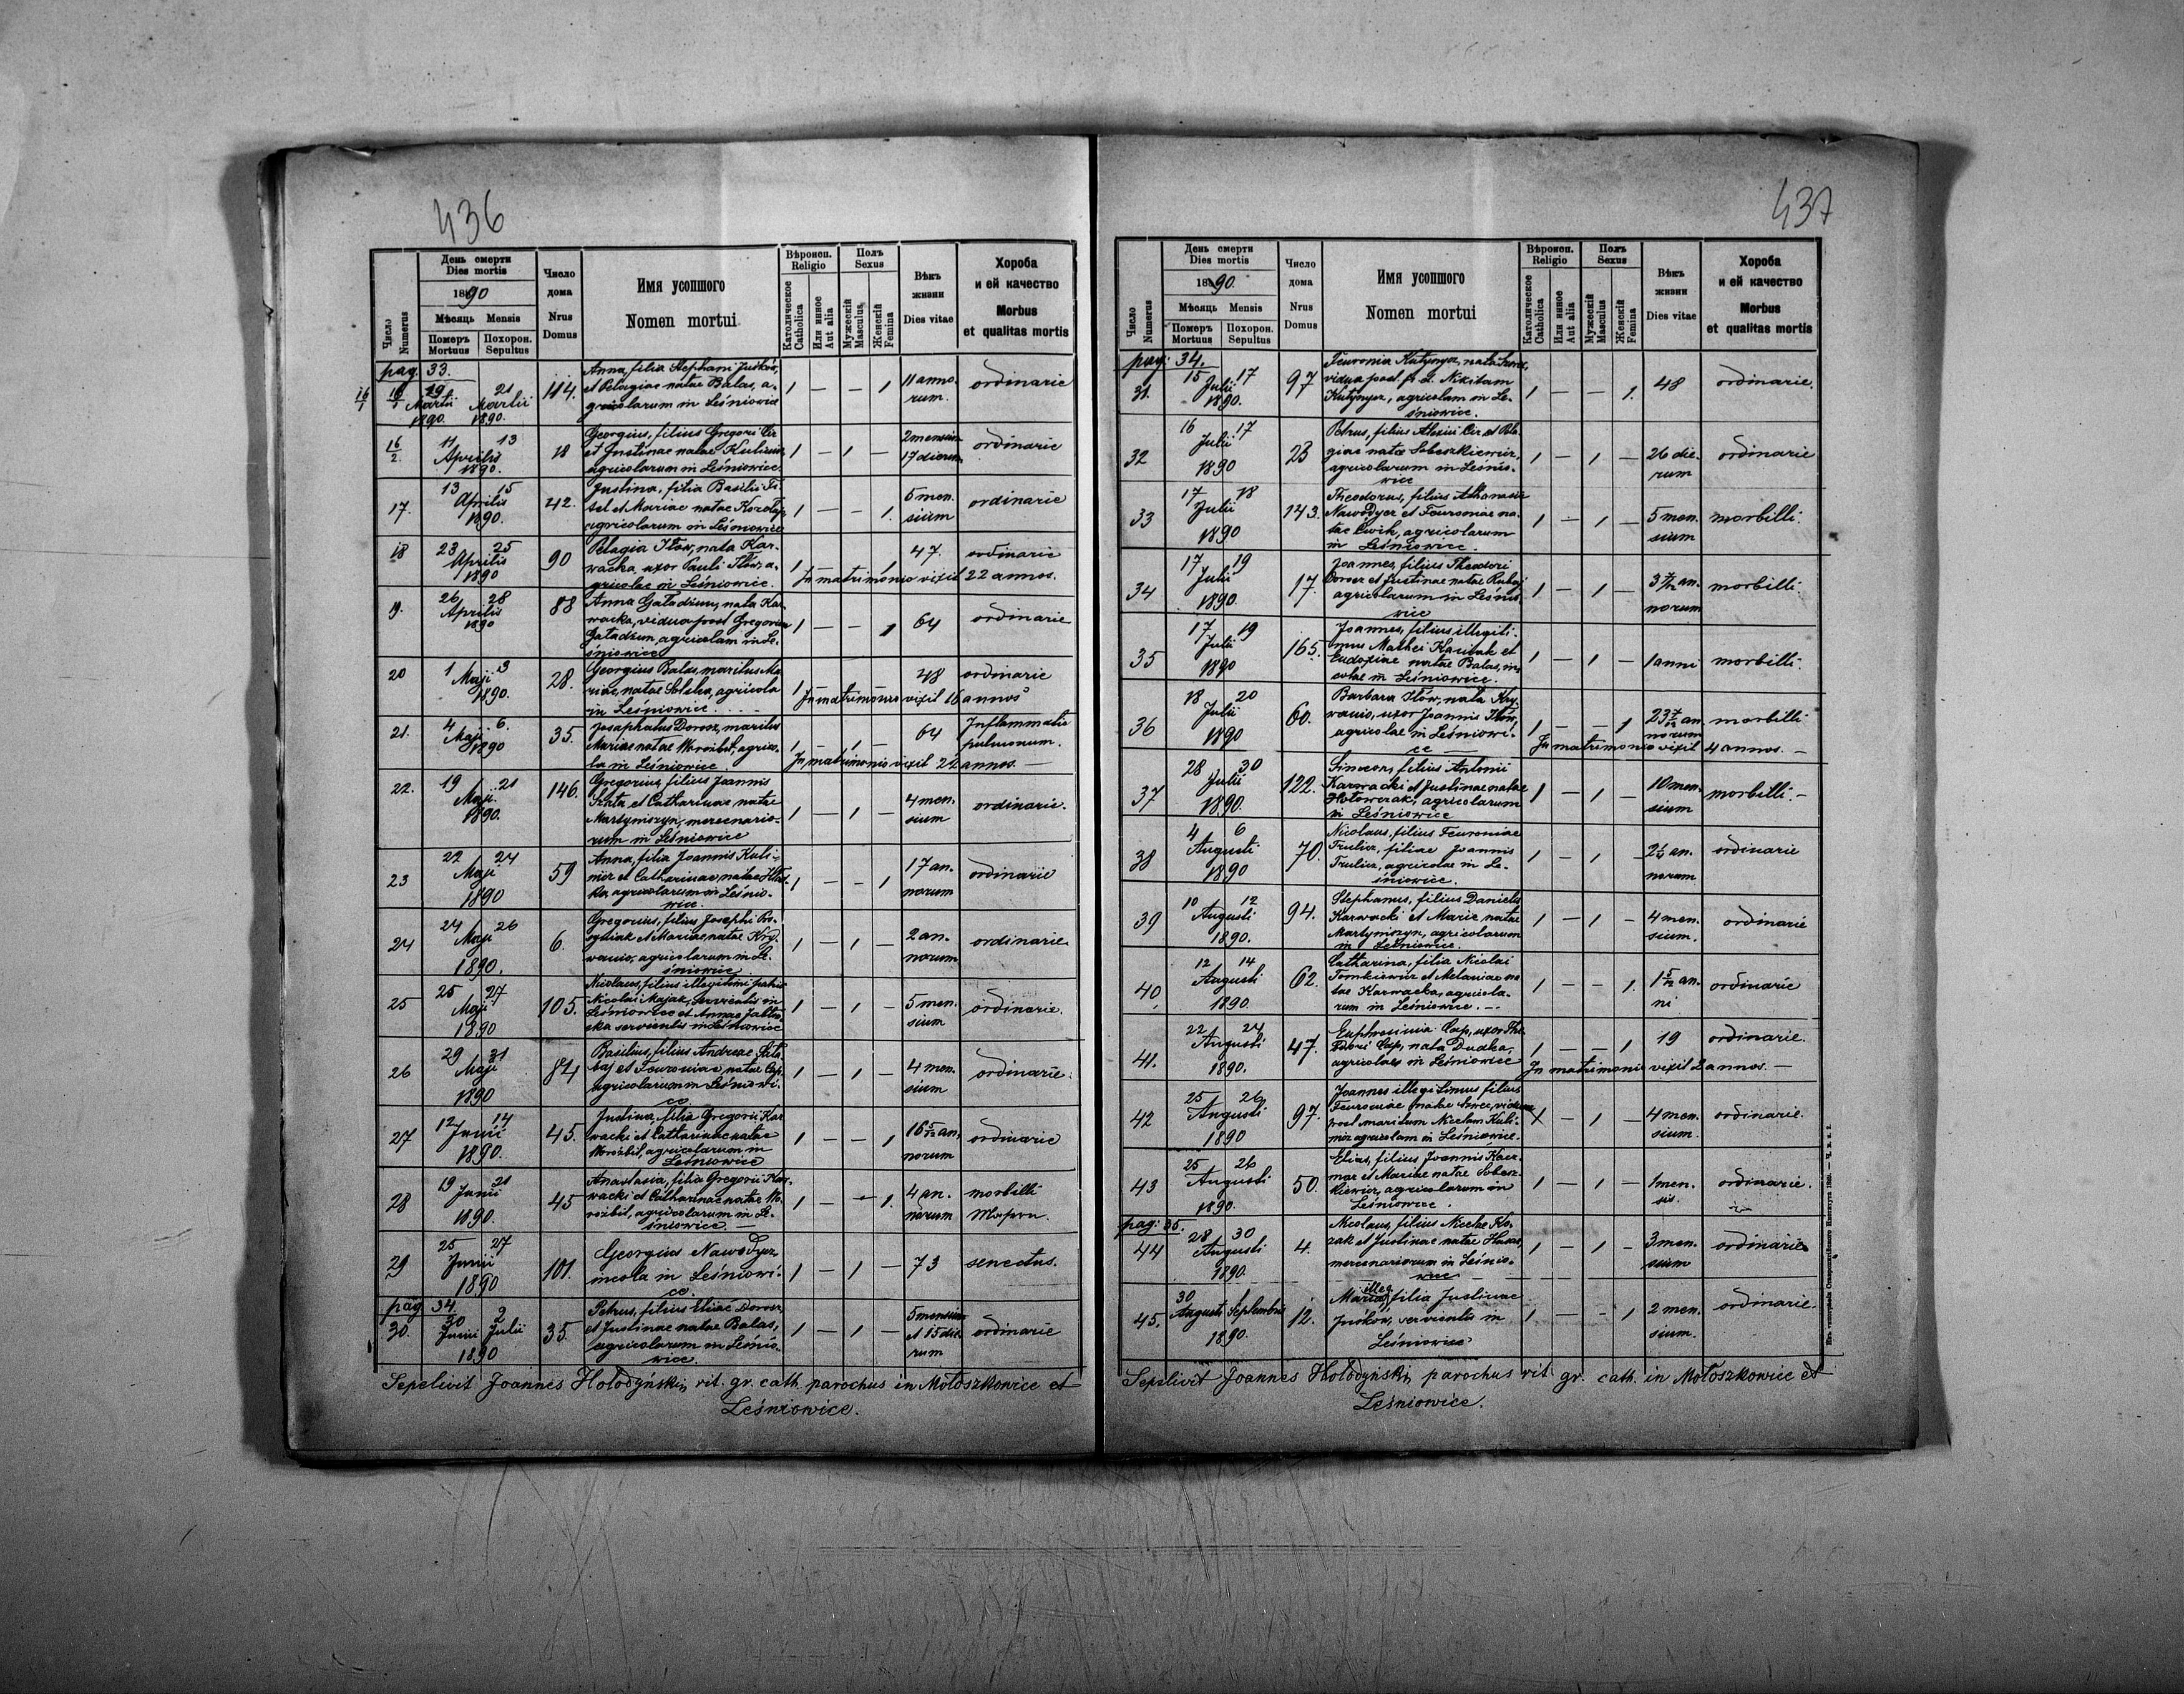 436
Число Numerus
День смерти
Dies mortis
1890
Мѣсяць Mensis
Померъ Mortuus
Похорон. Sepultus
Число дома
Nrus Domus
Имя усопшого
Nomen mortui
Вѣроисп.
Religio
Католическое Catholica
Или инное Aut alia
Полъ
Sexus
Мужескій Masculus
Женскій Femina
Вѣкъ жизни
Dies vitae
Хороба
и ей качество
Morbus
et qualitas mortis
pag. 33.
16/1 16/1 19 Martii 1890. 21 Martii 1890. 114.
Anna, filia Stephani Juśków,
et Pelagiae natae Balas, a-
gricolarum in Leśniowice
1 — — 1 11 anno-
rum. ordinarie
16/2. 11 13 Aprilis 1890. 18
Georgius, filius Gregorii Cir
et Justinae natae
agricolarum in Leśniowice
1 — 1 — 2 mensium
17 dierum ordinarie
17. 13 15 Aprilis 1890. 42.
Justina, filia Basilii
et Mariae natae
agricolarum in Leśniowice
1 — — 1. 5 men-
sium ordinarie
18 23 25 Aprilis 1890 90
Pelagia Iłow, nata Kar-
wacka, uxor Pauli Iłow, a-
gricolae in Leśniowice.
1 — — 1 47. ordinarie
In matrimonio vixit 22 annos.
19. 26 28 Aprilis 1890 88
Anna Gaładziun, nata Kar-
wacka, vidua post Gregorium
Gaładziun, agricolam in Le-
śniowice
1 — — 1 64 ordinarie
20 1 3 Maji 1890. 28.
Georgius Balas, maritus Ma-
riae, natae agricola
in Leśniowice.
1 — 1 — 48 ordinarie
In matrimonio vixit 16 annos
21. 4 6. Maji 1890 35.
Josaphatus Dorosz, maritus
Mariae natae Worożbit, agrico-
la in Leśniowice.
1 — 1 — 64 Inflammatio
pulmonum.
In matrimonio vixit 22 annos. —
22. 19 21 Maji 1890. 146.
Gregorius, filius Joannis
et Catharinae natae
Martyniszyn, mercenario-
rum in Leśniowice
1 — 1 — 4 men-
sium ordinarie.
23 22 24 Maji 1890 59
Anna, filia Joannis Kuli-
nicz et Catharinae, natae
agricolarum in Leśnio-
wice.
1 — — 1 17 an-
norum ordinarie
24 24 26 Maji 1890. 6.
Gregorius, filius Josephi
et Mariae natae Kry-
wanio, agricolarum in Le-
śniowice
1 — 1 — 2 an-
norum ordinarie.
25 25 27 Maji 1890 105.
Nicolaus, filius illegitimi
Nicolai Majak, servientis in
Leśniowice et Annae
servientis in Leśniowice
1 — 1 — 5 men-
sium ordinarie.
26 29 31 Maji 1890 84
Basilius, filius Andreae
et Fevroniae, natae Cap,
agricolarum in Leśniowi-
ce.
1 — 1 — 4 men-
sium ordinarie.
27 12 14 Junii 1890. 45.
Justina, filia Gregorii Kar-
wacki et Catharinae natae
Worożbit, agricolarum in
Leśniowice
1 — — 1 16 5/12 an-
norum ordinarie
28 19 21 Junii 1890. 45
Anastasia, filia Gregorii Kar-
wacki et Catharinae natae Wo-
rożbit, agricolarum in Le-
śniowice. —
1 — — 1. 4 an-
norum morbilli
29 25 27 Junii 1890 101.
Georgius Nawodyer,
incola in Leśniowi-
ce.
1 — 1 — 73 senectus.
pag. 34.
30. 30 Junii 2 Julii 1890 35.
Petrus, filius Eliae Dorosz,
et Justinae natae Balas,
agricolarum in Leśnio-
wice.
1 — 1 — 5 mensium
et 15 die-
rum ordinarie
Sepelivit Joannes Hołodyński, rit. gr. cath. parochus in Mołoszkowice et
Leśniowice.
437
Число Numerus
День смерти
Dies mortis
1890.
Мѣсяць Mensis
Померъ Mortuus
Похорон. Sepultus
Число дома
Nrus Domus
Имя усопшого
Nomen mortui
Вѣроисп.
Religio
Католическое Catholica
Или инное Aut alia
Полъ
Sexus
Мужескій Masculus
Женскій Femina
Вѣкъ жизни
Dies vitae
Хороба
и ей качество
Morbus
et qualitas mortis
pag: 34.
31. 15 17 Julii 1890. 97
Fevronia Kutynycz, nata
vidua post Nikitam
Kutynycz, agricolam in Le-
śniowice.
1 — — 1. 48 ordinarie.
32 16 17 Julii 1890 23
Petrus, filius Alexii Cir et Pela-
giae natae Sobeszkiewicz,
agricolarum in Leśnio-
wice
1 — 1 — 26 die-
rum ordinarie
33 17 18 Julii 1890 143.
Theodorus, filius Athanasii
Nawodyer et Fevroniae na-
tae Cwih, agricolarum
in Leśniowice.
1 — 1 — 5 men-
sium morbilli.
34 17 19 Julii 1890. 17.
Joannes, filius Theodori
Dorosz et Justinae natae
agricolarum in Leśnio-
wice
1 — 1 — 3 7/12 an-
norum morbilli.
35 17 19 Julii 1890 165.
Joannes, filius illegiti-
mus Mathei et
Eudoxiae natae Balas, in-
colae in Leśniowice.
1 — 1 — 1 anni morbilli.
36 18 20 Julii 1890 60.
Barbara Iłow, nata Kry-
wanio, uxor Joannis Iłow,
agricolae in Leśniowi-
ce
1 — — 1 23 7/12 an-
norum morbilli
In matrimonio vixit 4 annos. —
37 28 30 Julii 1890. 122.
Simeon, filius Antonii
Karwacki et Justinae natae
Hołowczak, agricolarum
in Leśniowice
1 — 1 — 10 men-
sium morbilli. —
38 4 6 Augusti 1890 70.
Nicolaus, filius Fevroniae
Trulicz, filiae Joannis
Trulicz, agricolae in Le-
śniowice.
1 — 1 — 2 1/2 an-
norum ordinarie
39 10 12 Augusti 1890. 94.
Stephanus, filius Danielis
Karwacki et Marie natae
Martyniszyn, agricolarum
in Leśniowice.
1 — 1 — 4 men-
sium. ordinarie
40 12 14 Augusti 1890. 62.
Catharina, filia Nicolai
Tomkiewicz et Melaniae na-
tae Karwacka, agricola-
rum in Leśniowice. —
1 — — 1. 1 5/12 an-
ni ordinarie
41. 22 24 Augusti 1890. 47.
Euphrosinia Cap, uxor The-
odori Cap, nata Dudka,
agricolae in Leśniowice
1 — — 1 19 ordinarie.
In matrimonio vixit 2 annos. —
42 25 26 Augusti 1890 97.
Joannes illegitimus filius
Fevroniae natae viduae
post maritum Nicetam Kuli-
nicz agricolam in Leśniowice.
1 — 1 — 4 men-
sium. ordinarie.
43 25 26 Augusti 1890. 50.
Elias, filius Joannis Kacz-
mar et Mariae natae Sobesz-
kiewicz, agricolarum in
Leśniowice.
1 — 1 — 1 men-
sis. ordinarie.
pag: 35.
44 28 30 Augusti 1890. 4.
Nicolaus, filius Nicetae Ko-
zak et Justinae natae
mercenariorum in Leśnio-
wice
1 — 1 — 3 men-
sium ordinarie
45. 30 Augusti Septembris 1890. 12.
illeg.
Maria, filia Justinae
Juśków, servientis in
Leśniowice
1 — — 1 2 men-
sium. ordinarie.
Sepelivit Joannes Hołodyński, parochus rit. gr. cath. in Mołoszkowice et
Leśniowice.
Изъ типографіи Ставропигійского Института 1890.